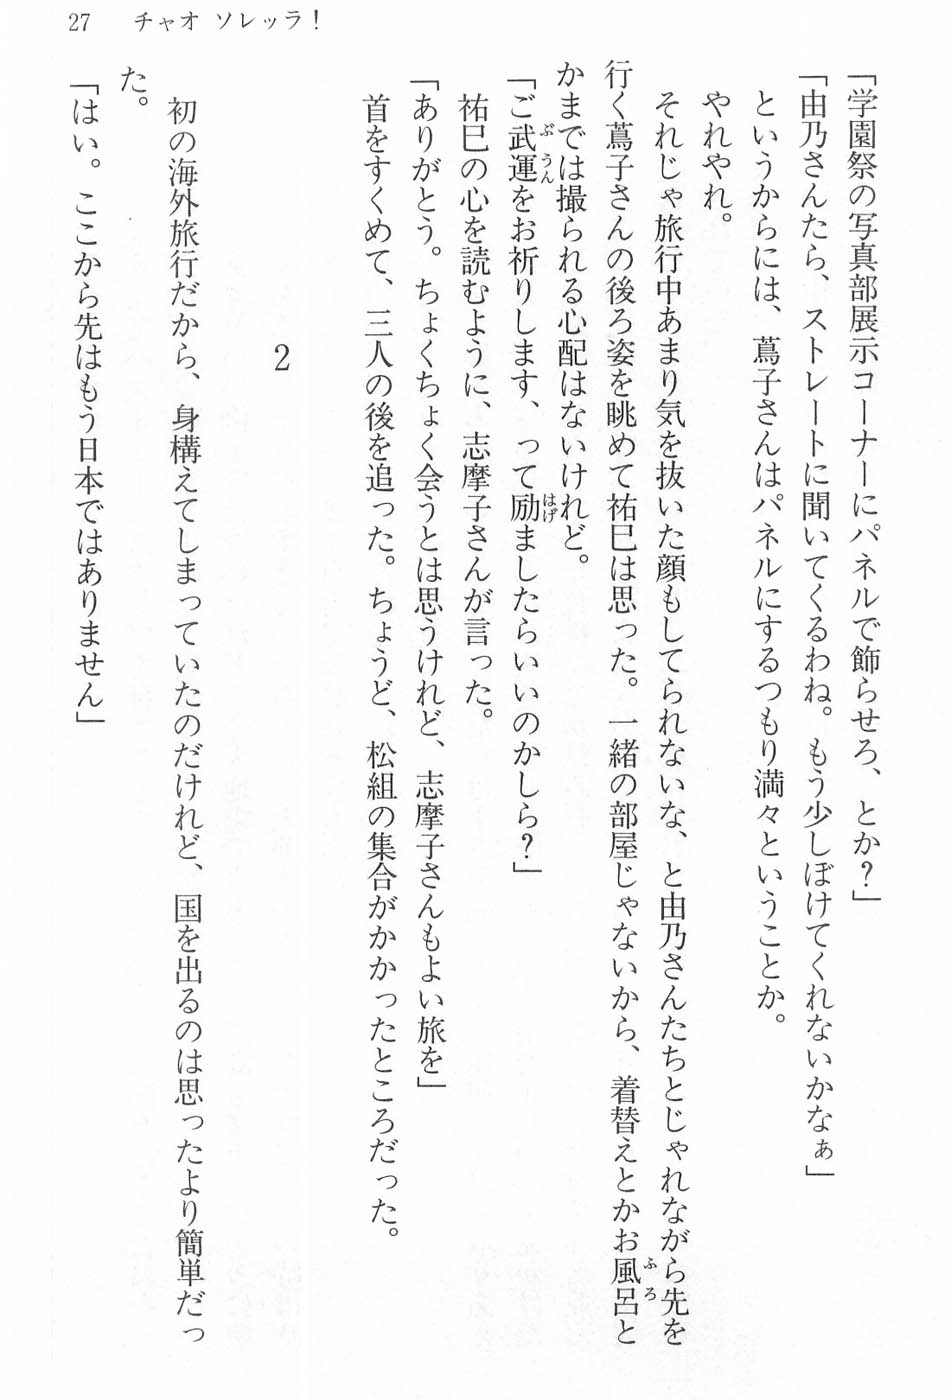 27　チャオ ソレッラ！
「学園祭の写真部展示コーナーにパネルで飾らせろ、とか？」
「由乃さんたら、ストレートに聞いてくるわね。もう少しぼけてくれないかなぁ」
　というからには、蔦子さんはパネルにするつもり満々ということか。
　やれやれ。
　それじゃ旅行中あまり気を抜いた顔もしてられないな、と由乃さんたちとじゃれながら先を
行く蔦子さんの後ろ姿を眺めて祐巳は思った。一緒の部屋じゃないから、着替えとかお風呂と
かまでは撮られる心配はないけれど。
「ご武運をお祈りします、って励ましたらいいのかしら？」
　祐巳の心を読むように、志摩子さんが言った。
「ありがとう。ちょくちょく会うとは思うけれど、志摩子さんもよい旅を」
　首をすくめて、三人の後を追った。ちょうど、松組の集合がかかったところだった。
2
　初の海外旅行だから、身構えてしまっていたのだけれど、国を出るのは思ったより簡単だっ
た。
「はい。ここから先はもう日本ではありません」